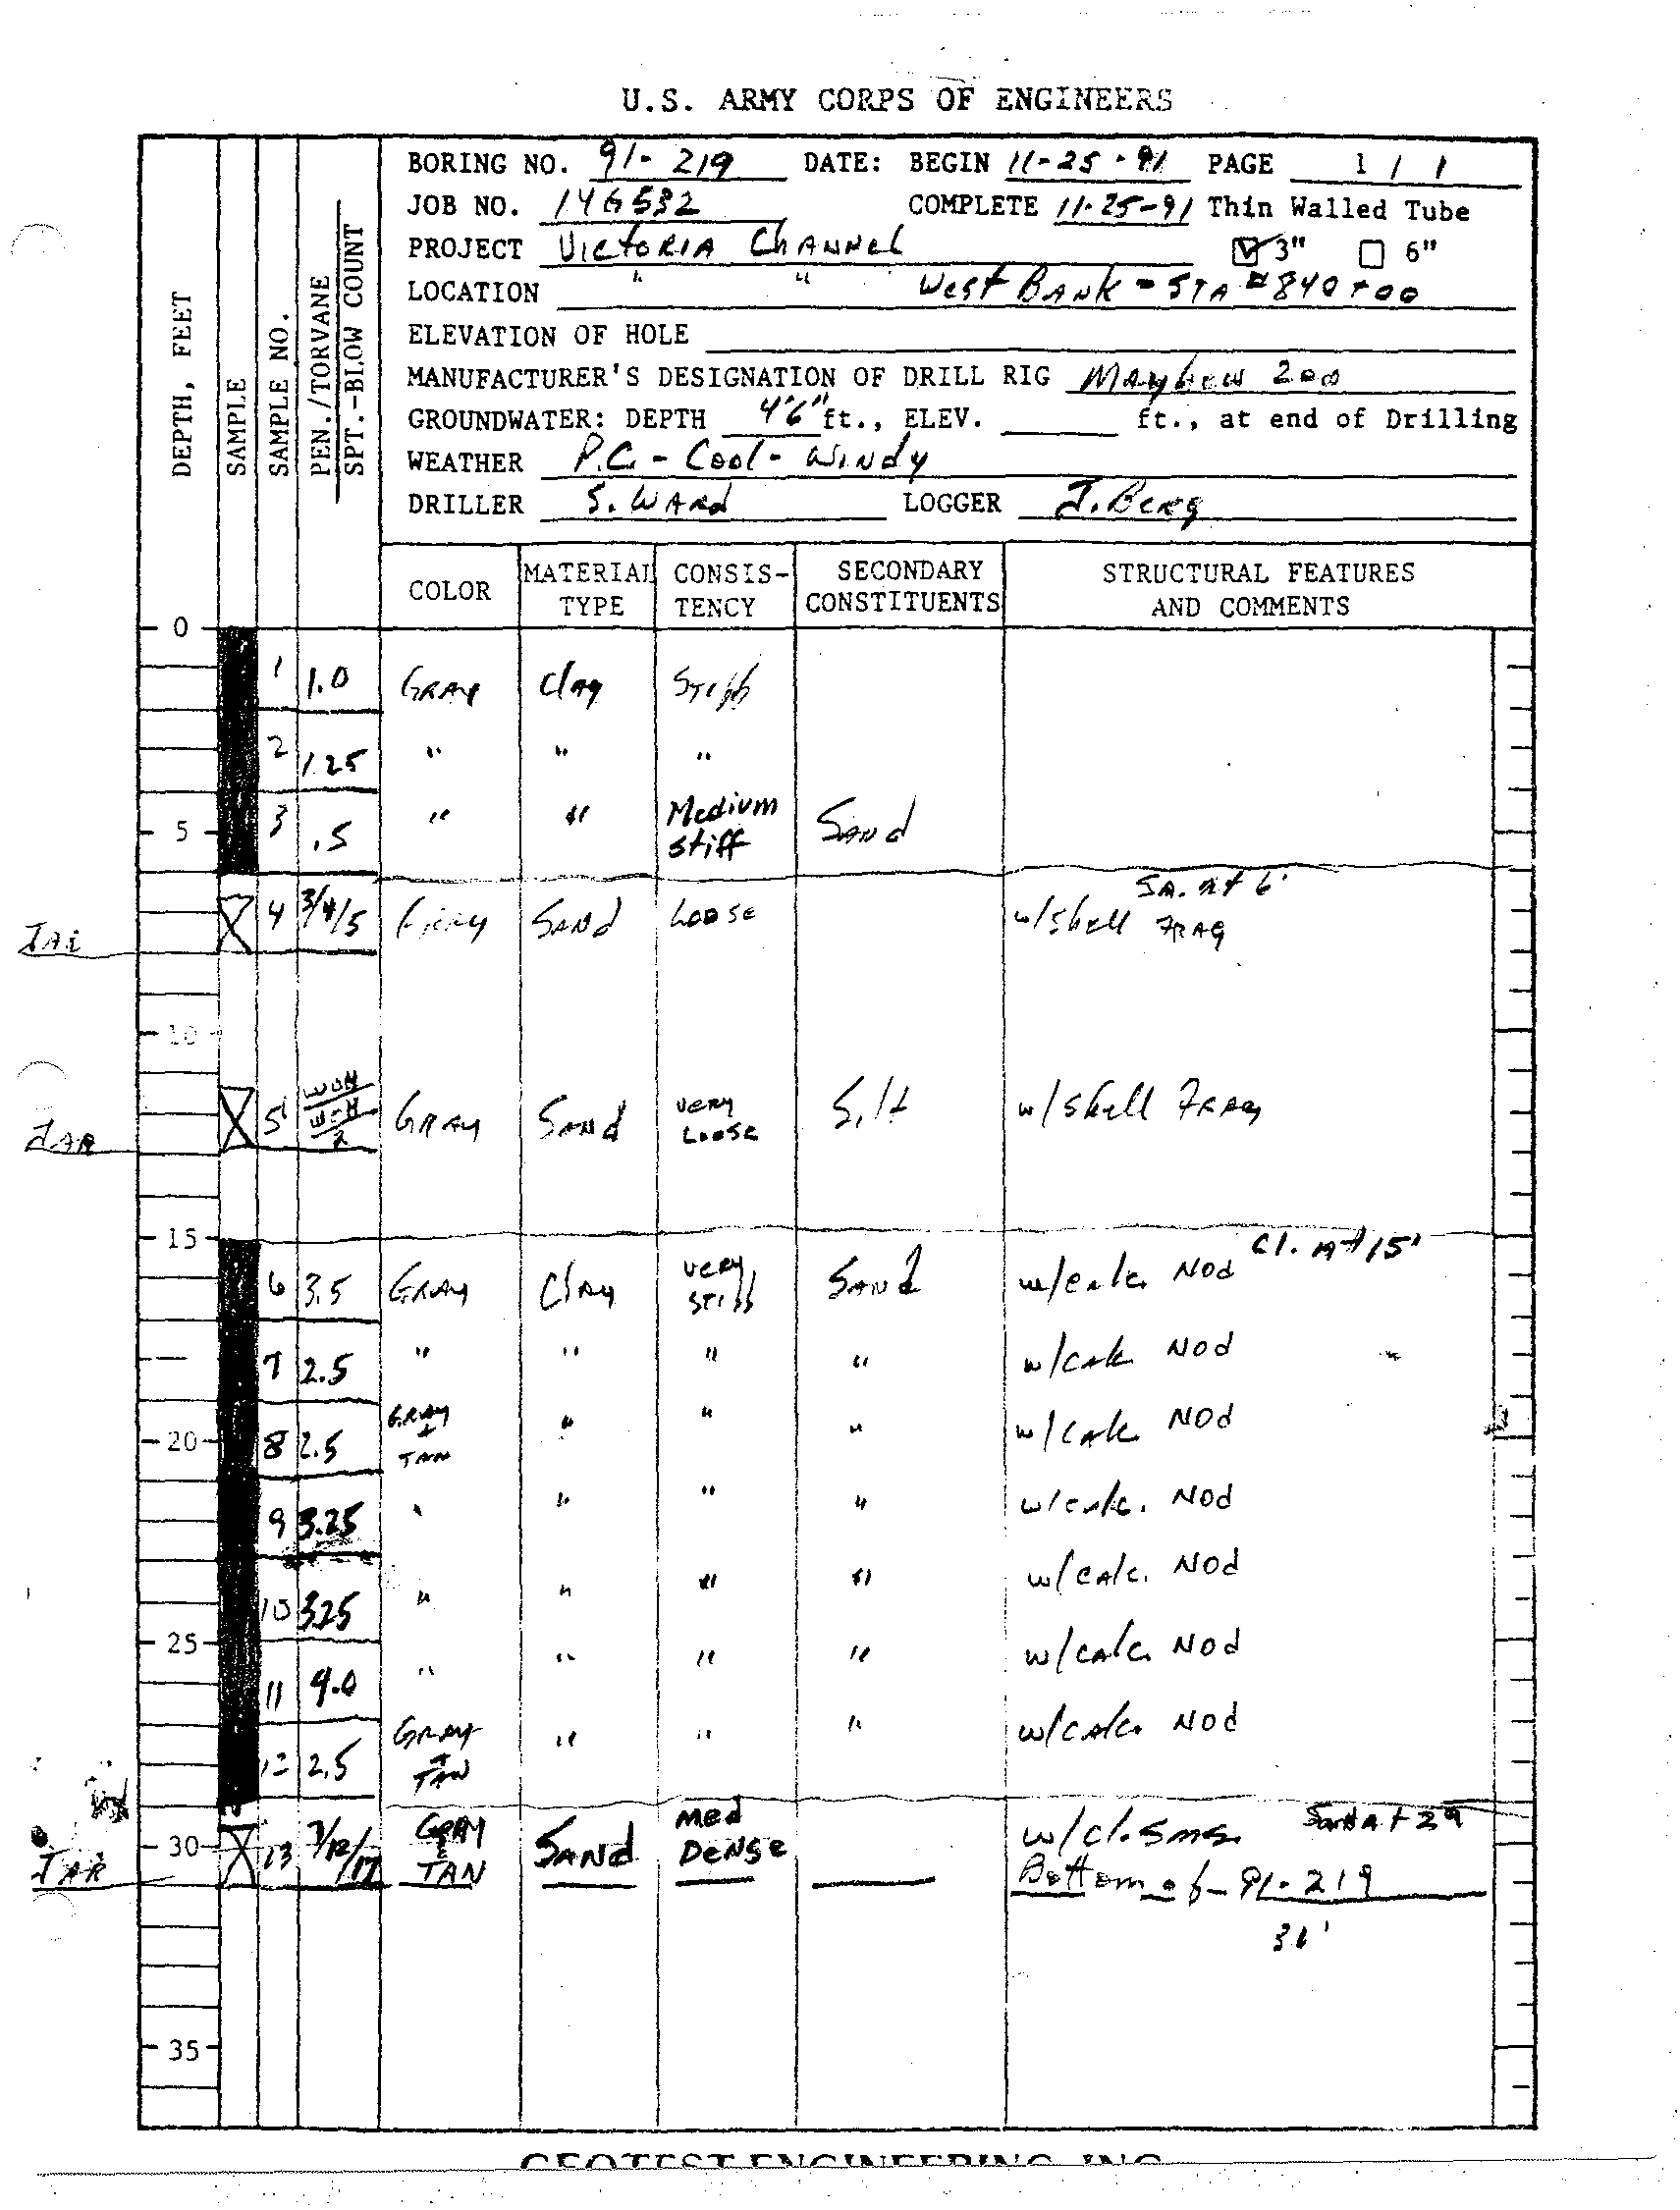 U.S. ARMY CORPS OF ENGINEERS
BORING NO. 91-219 DATE: BEGIN 11-25-91 PAGE 1 / 1
JOB NO. 14G532 COMPLETE 11-25-91 Thin Walled Tube
PROJECT Victoria Channel 3" 6"
LOCATION " " West Bank - STA #840+00
ELEVATION OF HOLE
MANUFACTURER'S DESIGNATION OF DRILL RIG Mayhew 200
GROUNDWATER: DEPTH 4'6" ft., ELEV. ft., at end of Drilling
WEATHER P.C. - Cool - Windy
DRILLER S. Ward LOGGER J. Berg
DEPTH, FEET
SAMPLE
SAMPLE NO.
PEN./TORVANE
SPT.-BLOW COUNT
COLOR MATERIAL TYPE CONSIS-TENCY SECONDARY CONSTITUENTS STRUCTURAL FEATURES AND COMMENTS
0
1 1.0 Gray Clay Stiff
2 1.25 " " "
5 3 .5 " " Medium stiff Sand
SA. at 6'
JAR 4 3/4/5 Gray Sand Loose w/shell Frag
10
JAR 5 WOH/WOH/2 Gray Sand very Loose Silt w/shell Frag
15
Cl. At 15'
6 3.5 Gray Clay very stiff Sand w/calc. Nod
7 2.5 " " " " w/calc Nod
20 8 2.5 Gray + TAN " " " w/calc Nod
9 3.25 " " " " w/calc. Nod
10 3.25 " " " " w/calc. Nod
25
11 4.0 " " " " w/calc. Nod
12 2.5 Gray + TAN " " " w/calc. Nod
Sand At 29
30 JAR 13 7/12/17 GRAY & TAN Sand Med Dense w/cl. sms.
Bottom of - 91-219
31'
35
GEOTEST ENGINEERING, INC.